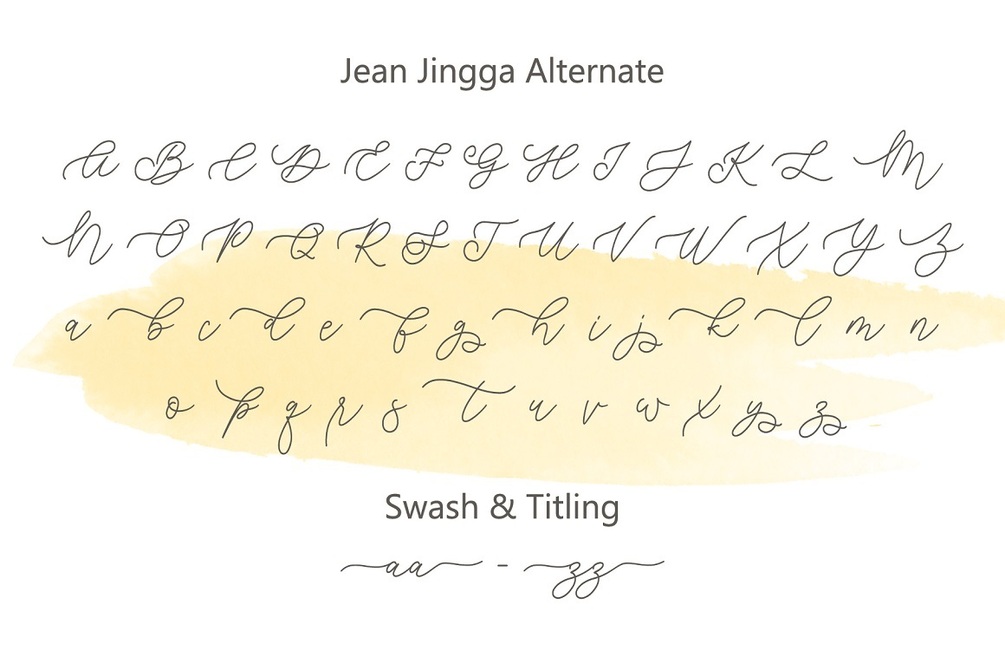 Jean Jingga Alternate
A B C D E F G H I J K L M
N O P Q R S T U V W X Y Z
a b c d e f g h i j k l m n
o p q r s t u v w x y z
Swash & Titling
aa - zz